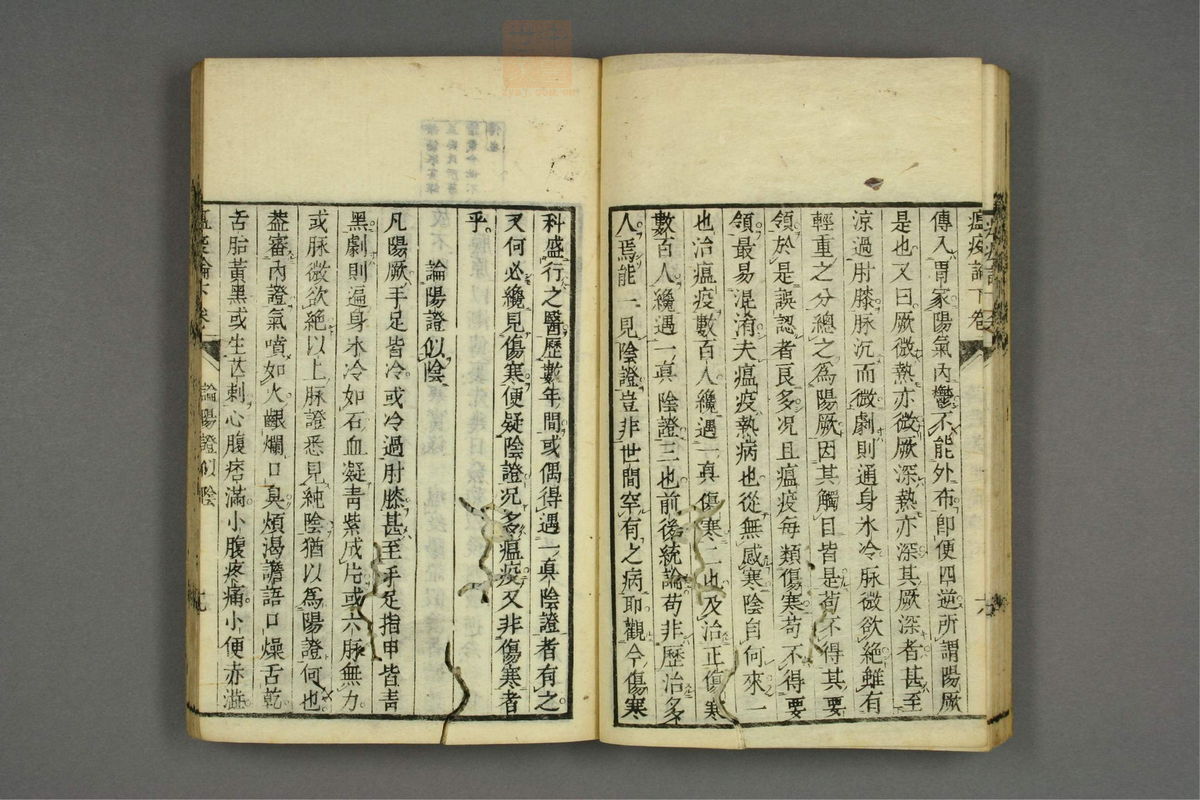 傳入胃家陽氣内鬱不能外布即便四逆所謂陽厥
是也又曰厥微熱亦微厥深熱亦深其厥深者甚至
涼過肘膝脉沉而微劇則通身氷冷脉微欲絶雖有
輕重之分總之爲陽厥因其觸目皆是苟不得其要
領於是誤認者良多况且瘟疫每類傷寒苟不得要
領最易混淆夫瘟疫熱病也從無感寒陰自何來一
也治瘟疫數百人纔遇一真傷寒二也及治正傷寒
數百人纔遇一真陰證三也前後統論苟非歷治多
人焉能一見陰證豈非世間罕有之病耶觀今傷寒
科盛行之醫歷數年間或偶得遇一真陰證者有之
又何必纔見傷寒便疑陰證况多瘟疫又非傷寒者
乎
論陽證似陰
凡陽厥手足皆冷或冷過肘膝甚至手足指甲皆青
黑劇則遍身氷冷如石血凝青紫成片或六脉無力
或脉微欲絶以上脉證悉見純陰猶以爲陽證何也
葢審内證氣噴如火齦爛口臭煩渴譫語口燥舌乾
舌胎黄黑或生芒刺心腹痞滿小腹疼痛小便赤澁
瘟疫論下卷
論陽證似陰
十九